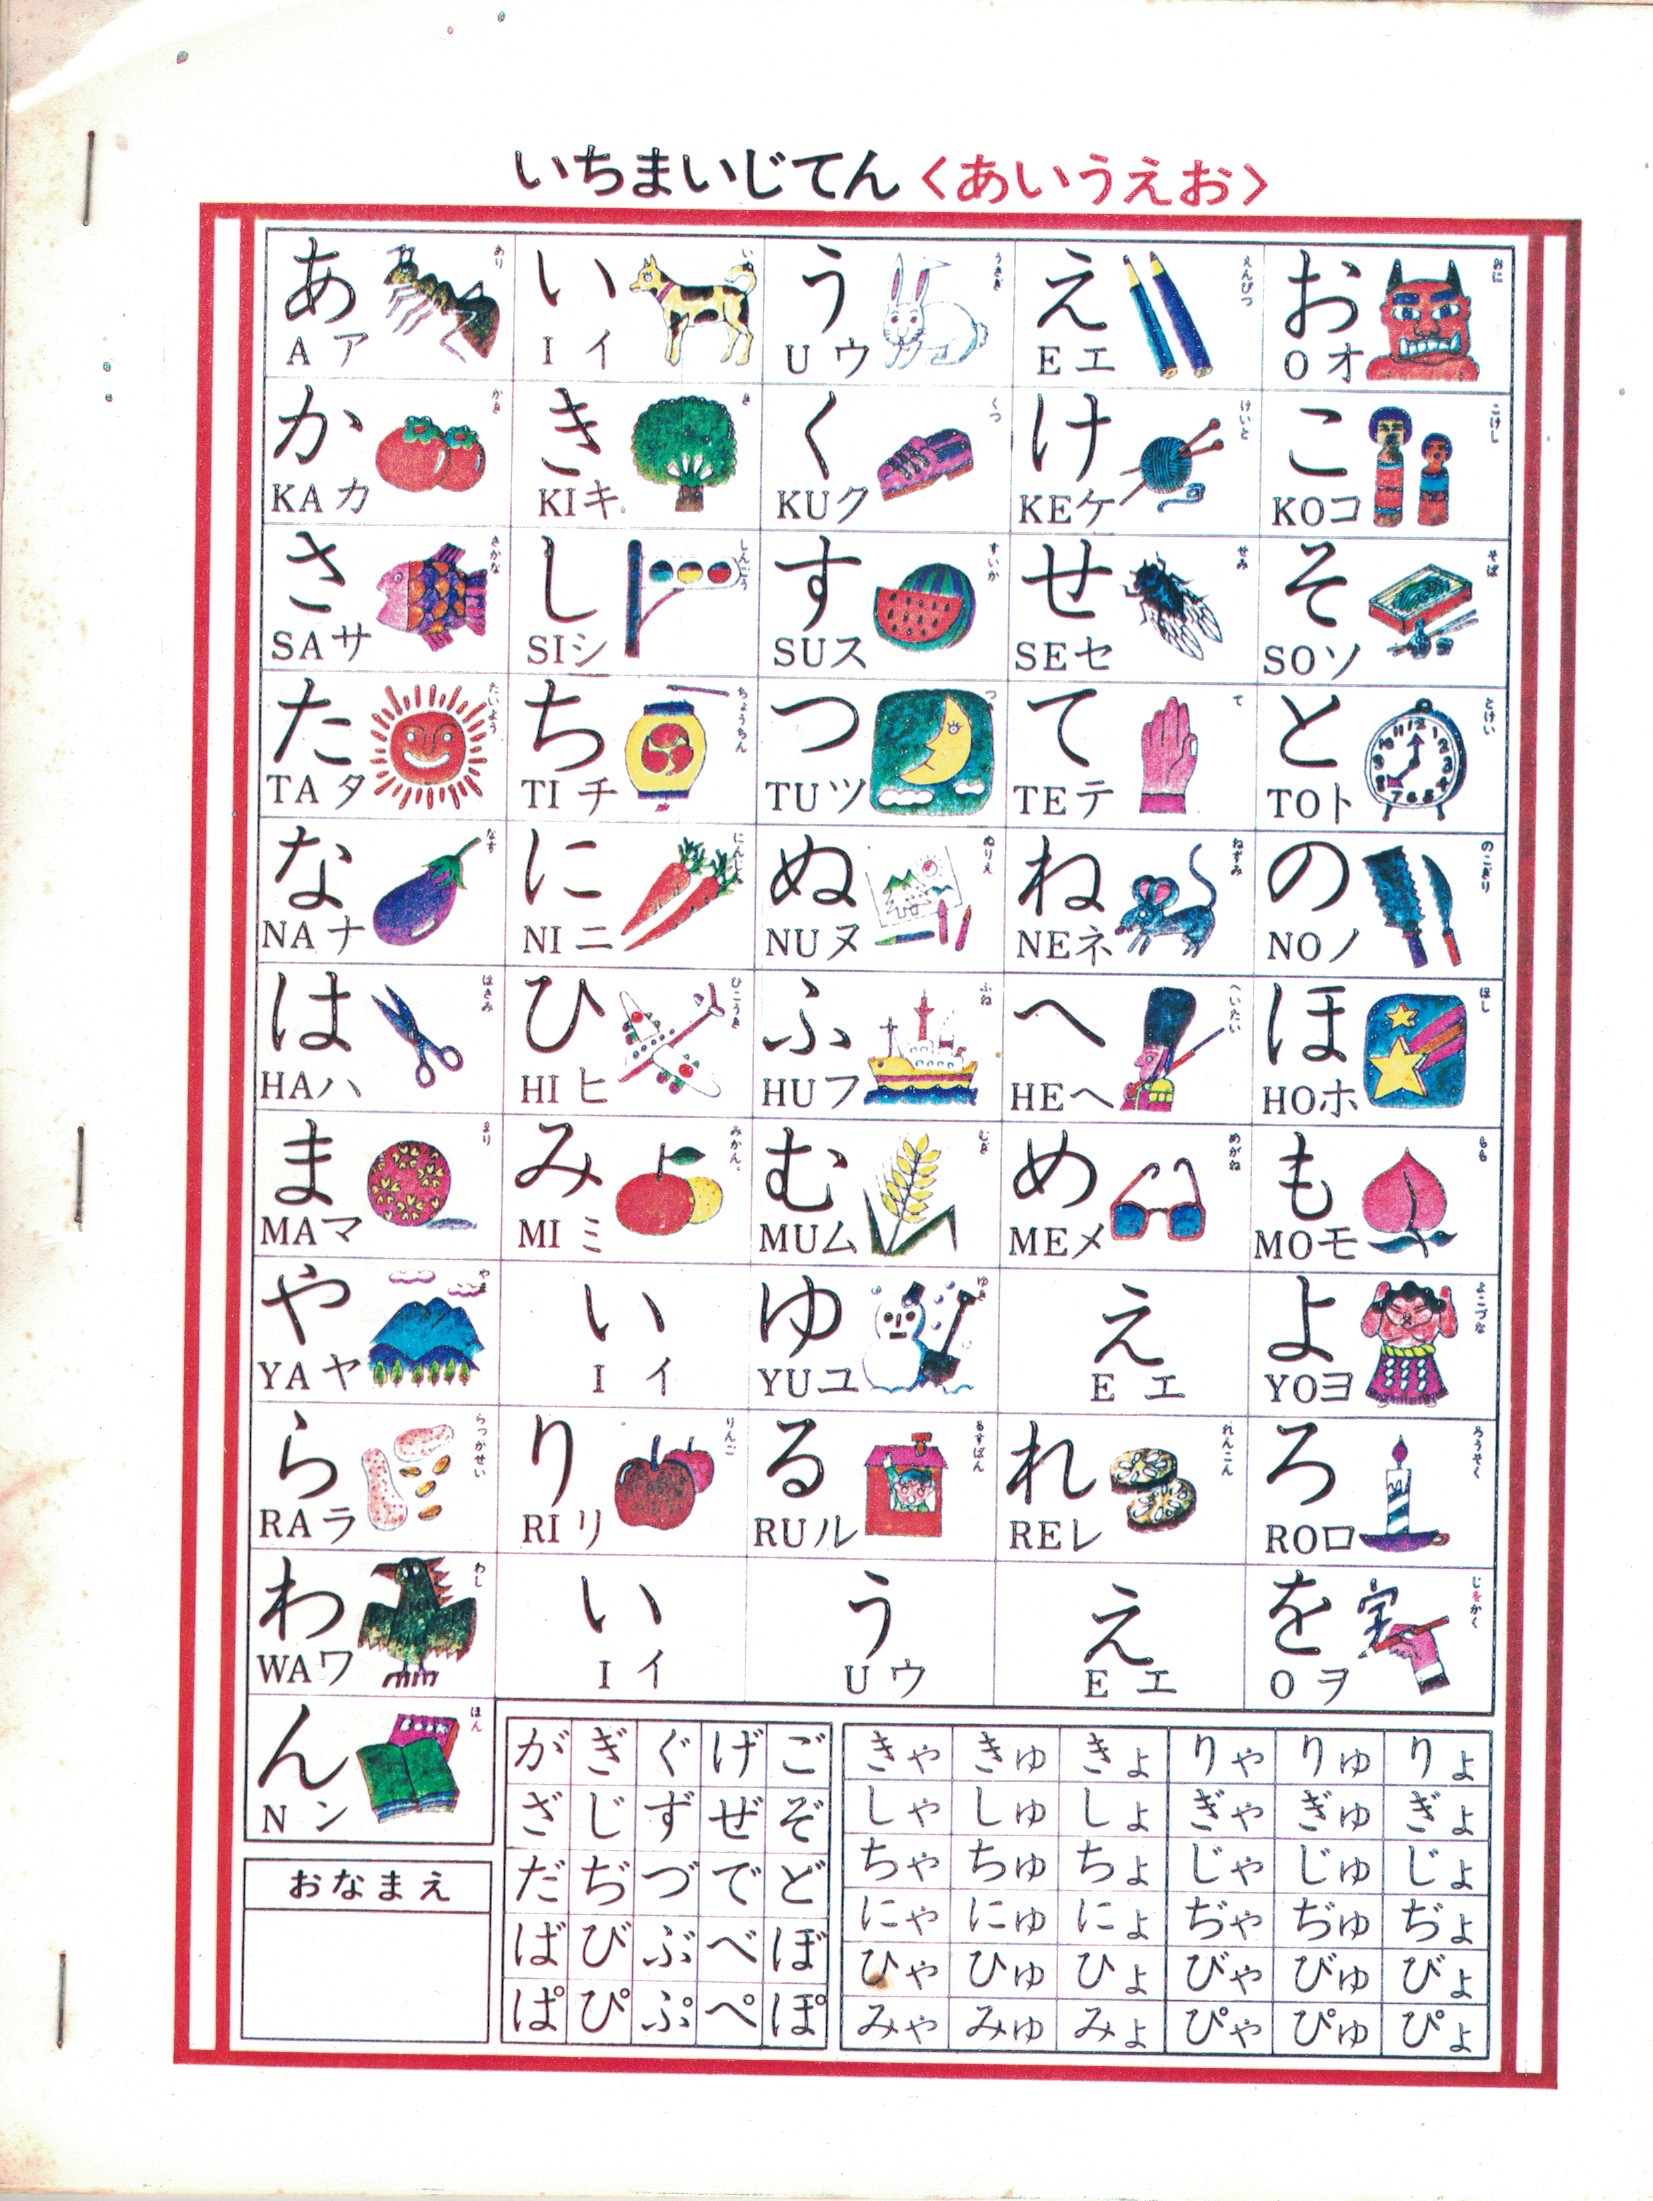 いちまいじてん〈あいうえお〉
あ A ア あり い I イ いぬ う U ウ うさぎ え E エ えんぴつ お O オ おに
か KA カ かき き KI キ き く KU ク くつ け KE ケ けいと こ KO コ こけし
さ SA サ さかな し SI シ しんごう す SU ス すいか せ SE セ せみ そ SO ソ そば
た TA タ たいよう ち TI チ ちょうちん つ TU ツ つき て TE テ て と TO ト とけい
な NA ナ なす に NI ニ にんじん ぬ NU ヌ ぬりえ ね NE ネ ねずみ の NO ノ のこぎり
は HA ハ はさみ ひ HI ヒ ひこうき ふ HU フ ふね へ HE ヘ へいたい ほ HO ホ ほし
ま MA マ まり み MI ミ みかん む MU ム むぎ め ME メ めがね も MO モ もも
や YA ヤ やま い I イ ゆ YU ユ ゆき え E エ よ YO ヨ よこづな
ら RA ラ らっかせい り RI リ りんご る RU ル るすばん れ RE レ れんこん ろ RO ロ ろうそく
わ WA ワ わし い I イ う U ウ え E エ を O ヲ じをかく 字
ん N ン ほん
おなまえ
が ぎ ぐ げ ご
ざ じ ず ぜ ぞ
だ ぢ づ で ど
ば び ぶ べ ぼ
ぱ ぴ ぷ ぺ ぽ
きゃ きゅ きょ りゃ りゅ りょ
しゃ しゅ しょ ぎゃ ぎゅ ぎょ
ちゃ ちゅ ちょ じゃ じゅ じょ
にゃ にゅ にょ ぢゃ ぢゅ ぢょ
ひゃ ひゅ ひょ びゃ びゅ びょ
みゃ みゅ みょ ぴゃ ぴゅ ぴょ